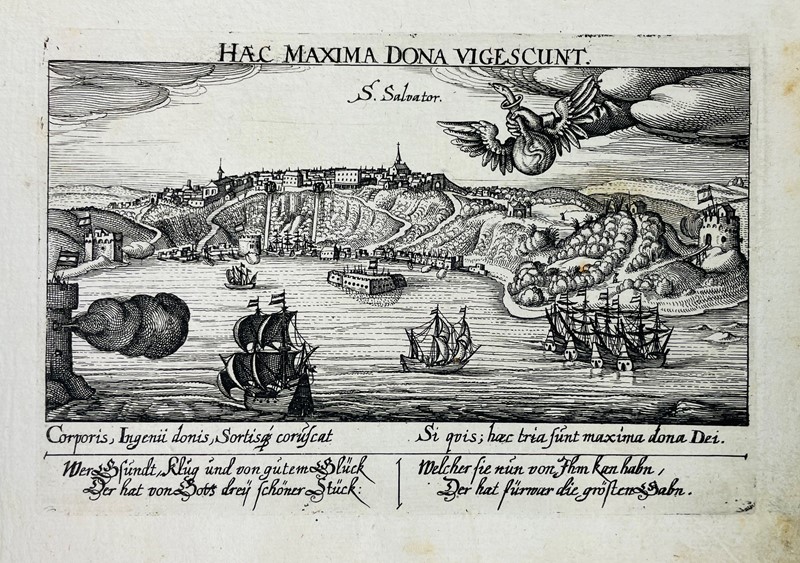 HÆC MAXIMA DONA VIGESCUNT.
S. Salvator.
Corporis, Ingenii donis, Sortisq́; coruscat
Si qvis; hæc tria sunt maxima dona Dei.
Wer Gsundt, Klùg und von gùtem Glück
Der hat von Gots dreÿ schöner Stück:
Welcher sie nun von Jhm kan habn,
Der hat fürwar die grösten Gabn.